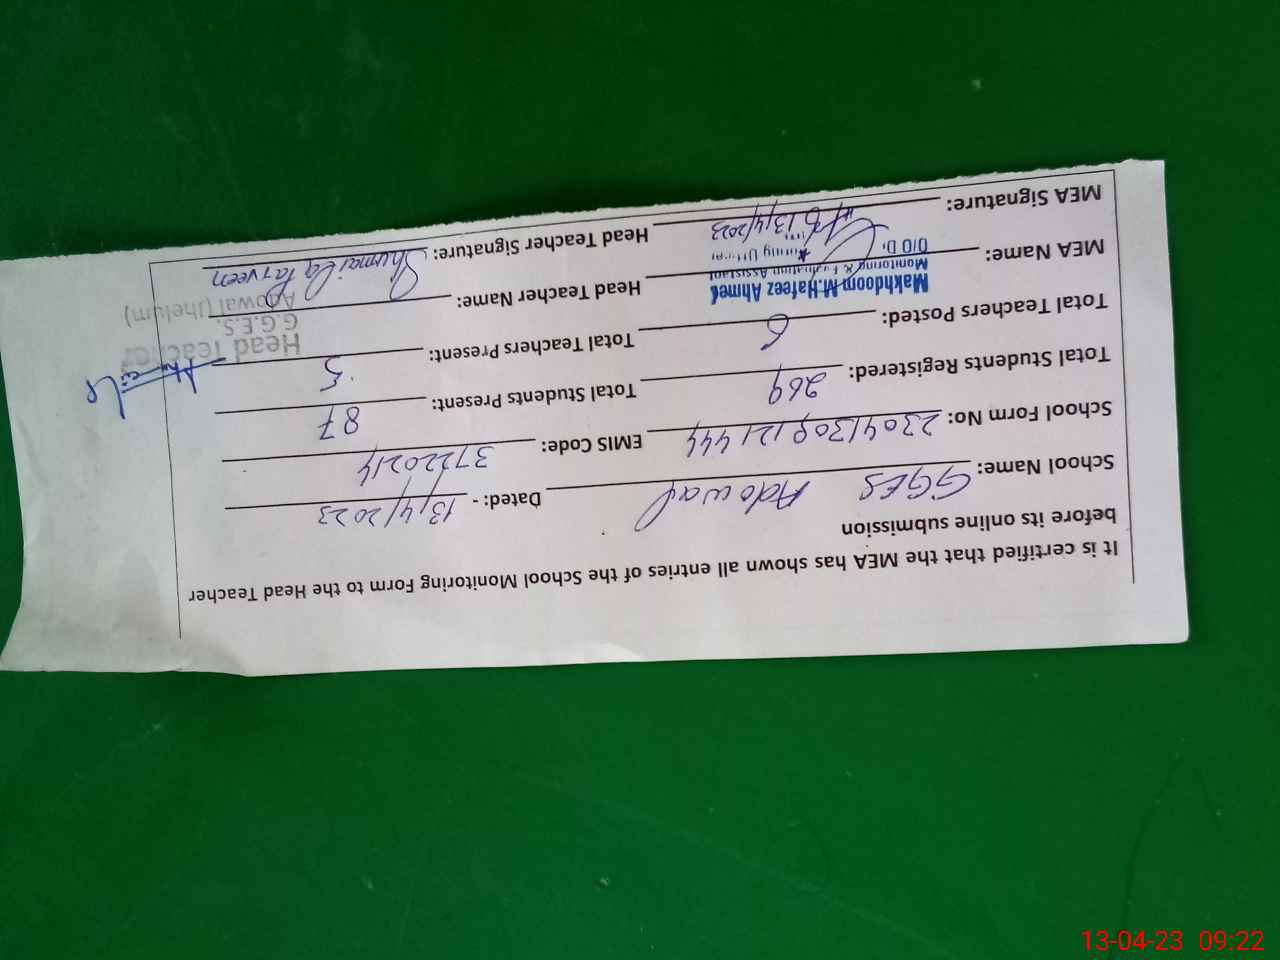 It is certified that the MEA has shown all entries of the School Monitoring Form to the Head Teacher
before its online submission
School Name: GGES Adowal Dated: - 13/4/2023
School Form No: 23041309121444 EMIS Code: 37220214
Total Students Registered: 269 Total Students Present: 87
Total Teachers Posted: 6 Total Teachers Present: 5
Head Teacher
G.G.E.S.
Adowal (Jhelum)
MEA Name: Makhdoom M.Hafeez Ahmed Head Teacher Name: Shumaila Parveen
Monitoring & Evaluation Assistant
O/O D
MEA Signature: 13/4/2023 Head Teacher Signature:
13-04-23 09:22